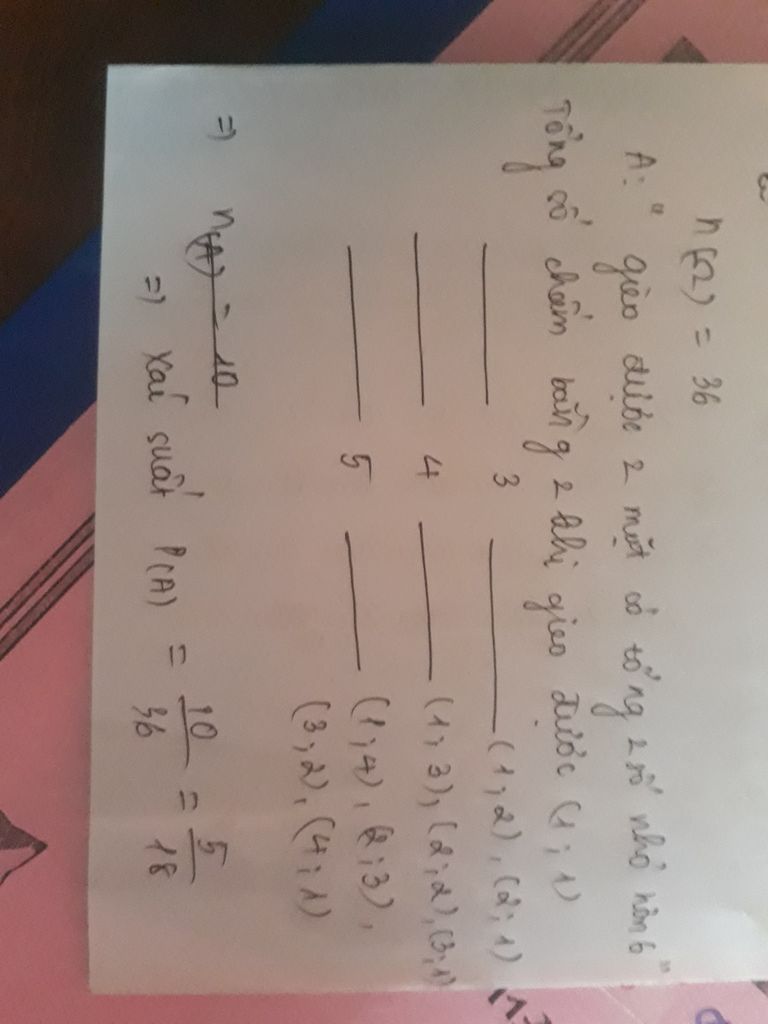 n(Ω) = 36
A: " gieo được 2 mặt có tổng 2 số nhỏ hơn 6 "
Tổng số chấm bằng 2 khi gieo được (1; 1)
3 (1; 2), (2; 1)
4 (1; 3), (2; 2), (3; 1)
5 (1; 4), (2; 3),
(3; 2), (4; 1)
=) n(A) = 10
=) Xác suất P(A) = 10/36 = 5/18